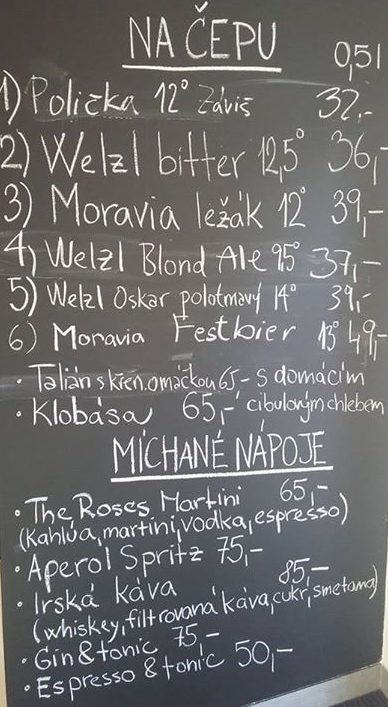 NA ČEPU
0,5l
1) Polička 12° Záviš 32,-
2) Welzl bitter 12,5° 36,-
3) Moravia ležák 12° 39,-
4) Welzl Blond Ale 9,5° 37,-
5) Welzl Oskar polotmavý 14° 39,-
6) Moravia Festbier 13° 49,-
• Talián s křen. omáčkou 65,- s domácím
• Klobása 65,- cibulovým chlebem
MÍCHANÉ NÁPOJE
• The Roses Martini 65,-
(Kahlúa, martini, vodka, espresso)
• Aperol Spritz 75,-
• Irská káva 85,-
(whiskey, filtrovaná káva, cukr, smetana)
• Gin & tonic 75,-
• Espresso & tonic 50,-